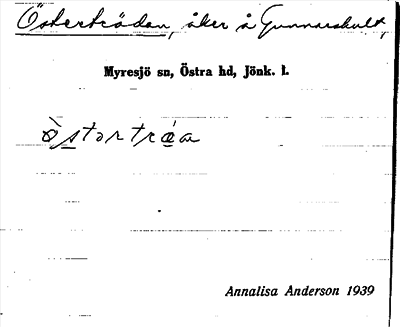 Östertrådan, åker å Gunnarshult,
Myresjö sn, Östra hd, Jönk. l.
ò̀stərtrá̱a
Annalisa Anderson 1939